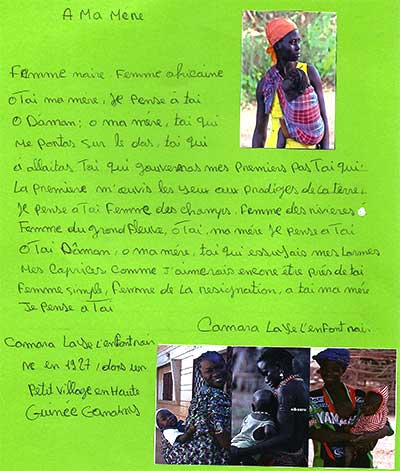 A Ma Mere
Femme noire, Femme africaine
O Toi ma mère, Je pense à toi
O Daman; o ma mére, toi qui
Me portas sur le dos, toi qui
d'allaitas Toi qui gouvernas mes premiers pas Toi qui
La premiere m'ouvris les yeux aux prodiges de la terre,
Je pense à Toi Femme des champs, Femme des rivieres
Femme du grand fleuve, ô Toi, ma mére Je pense à Toi
O Toi Dâman, o ma mére, toi qui essuyais mes larmes
Mes Caprices Comme J'aimerais encore être prés de toi
Femme simple, femme de la resignation, a toi ma mére
Je pense à Toi
Camara Laye L'enfant noir
Camara Laye L'enfant noir
ne en 1927, dans un
Petit Village en Haute
Guinee